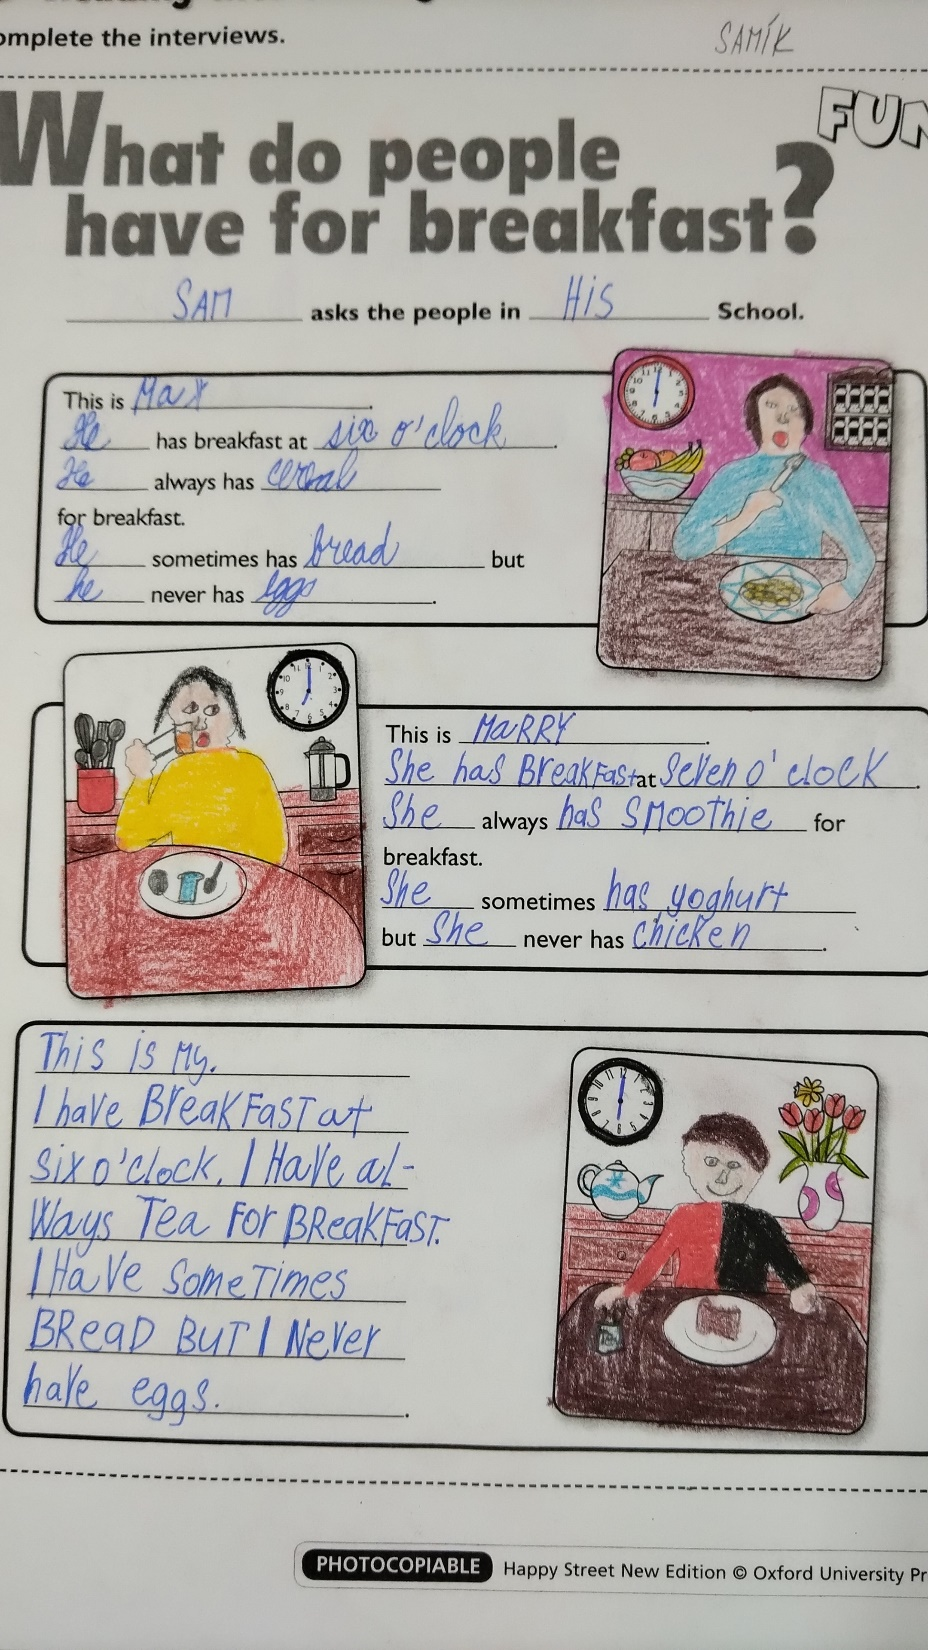 omplete the interviews.
SAMÍK
FUN
What do people
have for breakfast?
SAM asks the people in HiS School.
This is Max.
He has breakfast at six o'clock.
He always has cereal
for breakfast.
He sometimes has bread but
he never has eggs.
This is MaRRY.
She has BreaKFast at Seven o'clocK.
She always has SMooThie for
breakfast.
She sometimes has yoghurt
but She never has chicKen.
This is My.
I have BreaKFaST at
six o'clock. I Have al-
Ways Tea For BReaKFaST.
I HaVe SomeTimes
BReaD BuT I NeVer
haVe eggs.
PHOTOCOPIABLE Happy Street New Edition © Oxford University Pr